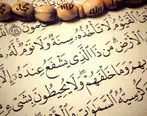 ٱلْقَيُّومُ لَا تَأْخُذُهُ سِنَةٌ وَلَا نَوْمٌ لَهُ
الْأَرْضِ مَنْ ذَا الَّذِي يَشْفَعُ عِنْدَهُ إِلَّا
يهِمْ وَمَا خَلْفَهُمْ وَلَا يُحِيطُونَ بِشَيْ
كُرْسِيُّهُ السَّمَوَاتِ وَ